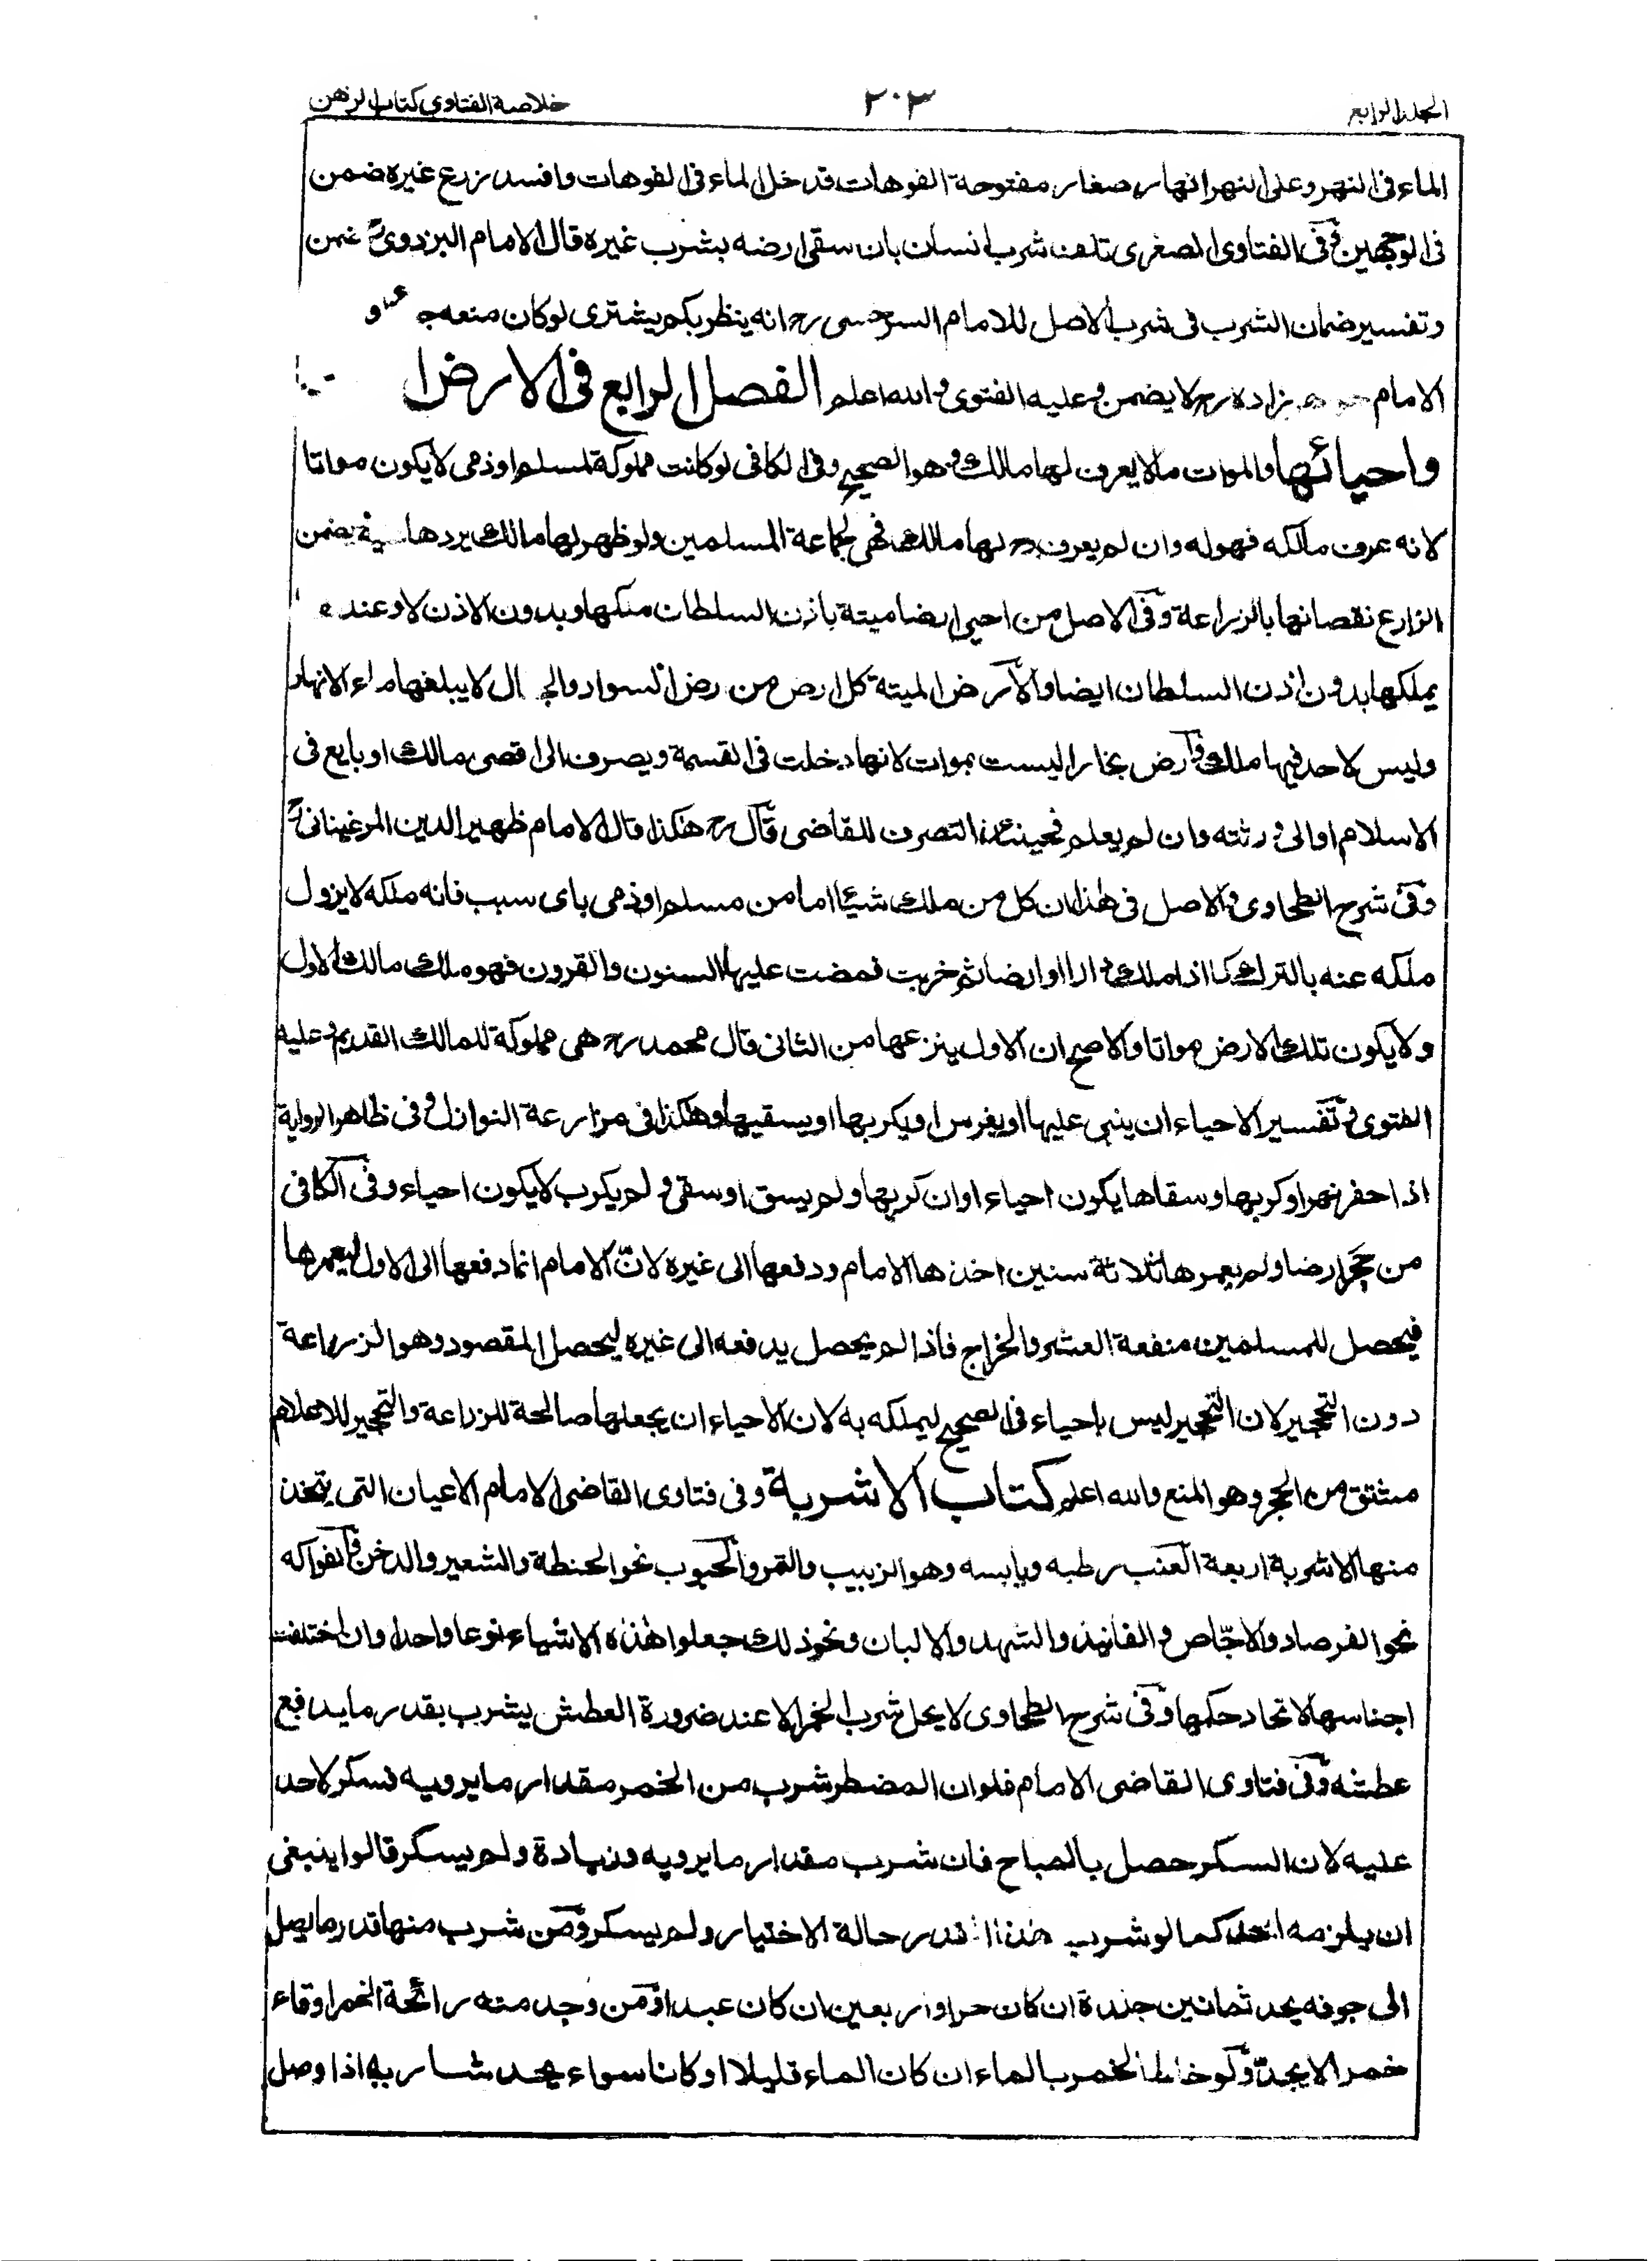 الجلد الرابع ٢٠٣ خلاصة الفتاوى كتاب الرهن
الماء فى النهر وعلى النهر انهار صغار مفتوحة الفوهات فدخل الماء فى الفوهات وافسد زرع غيره ضمن
فى الوجهين وفى الفتاوى الصغرى تلف شرب انسان بان سقى ارضه بشرب غيره قال الامام البزدوىؒ ضمن
وتفسير ضمان الشرب فى شرب الاصل للامام السرخسى رح انه ينظر بكم يشترى لو كان منعه
الامام زاده رح لا يضمن وعليه الفتوى والله اعلم الفصل الرابع فى الارض
واحيائها والموات ما لا يعرف لها مالك وهو الصحيح وفى الكافى لو كانت مملوكة لمسلم او ذمى لا يكون مواتا
لانه عرف مالكه فهو له وان لم يعرف لها مالك فهى لجماعة المسلمين ولو ظهر لها مالك يردها يضمن
الزارع نقصانها بالزراعة وفى الاصل من احيى ارضا ميتة باذن السلطان ملكها وبدون الاذن لا وعند
يملكها بدون اذن السلطان ايضا والارض الميتة كل ارض من رض السواد والجبال لا يبلغها ماء الانهار
وليس لاحد فيها ملك وارض بخارا ليست بموات لانها دخلت فى القسمة ويصرف الى اقصى مالك او بايع فى
الاسلام او الى ورثته وان لم يعلم فحينئذ التصرف للقاضى قال رح هكذا قال الامام ظهير الدين المرغينانىؒ
وفى شرح الطحاوى والاصل فى هذا ان كل من ملك شيئا اما من مسلم او ذمى باى سبب فانه ملكه لا يزول
ملكه عنه بالترك كما اذا ملك دارا او ارضا ثم خربت فمضت عليها السنون والقرون فهو ملك مالك الاول
ولا يكون تلك الارض مواتا والاصح ان الاول ينزعها من الثانى قال محمد رح هى مملوكة للمالك القديم وعليه
الفتوى وتفسير الاحياء ان يبنى عليها او يغرس او يكربها او يسقيها وهكذا فى مزارعة النوازل وفى ظاهر الرواية
اذا حفر نهرا وكربها وسقاها يكون احياء وان كربها ولم يسق او سقى ولم يكرب لا يكون احياء وفى الكافى
من حجر ارضا ولم يعمرها ثلاثة سنين اخذها الامام ودفعها الى غيره لان الامام انما دفعها الى الاول ليعمرها
فيحصل للمسلمين منفعة العشر والخراج فاذا لم يحصل يدفعه الى غيره ليحصل المقصود وهو الزراعة
دون التحجير لان التحجير ليس باحياء فى الصحيح ليملكه به لان الاحياء ان يجعلها صالحة للزراعة والتحجير للاعلام
مشتق من الحجر وهو المنع والله اعلم كتاب الاشربة وفى فتاوى القاضى الامام الاعيان التى يتخذ
منها الاشربة اربعة العنب رطبه ويابسه وهو الزبيب والتمر والحبوب نحو الحنطة والشعير والدخن والفواكه
نحو الفرصاد والاجّاص والفانيذ والشهد والالبان ونحو ذلك جعلوا هذه الاشياء نوعا واحدا وان اختلفت
اجناسها لاتحاد حكمها وفى شرح الطحاوى لا يحل شرب الخمر الا عند ضرورة العطش يشرب بقدر ما يدافع
عطشه وفى فتاوى القاضى الامام فلو ان المضطر شرب من الخمر مقدار ما يرويه فسكر لا حد
عليه لان السكر حصل بالمباح فان شرب مقدار ما يرويه وزيادة ولم يسكر قالوا ينبغى
ان يلزمه الحد كما لو شرب هذا القدر حالة الاختيار ولم يسكر ومن شرب منها قدر ما يصل
الى جوفه يحد ثمانين جلدة ان كان حرا واربعين ان كان عبدا ومن وجد منه رائحة الخمر او قاء
خمرا لا يحدّ ولو خلط الخمر بالماء ان كان الماء قليلا او كانا سواء يحد شاربه اذا وصل